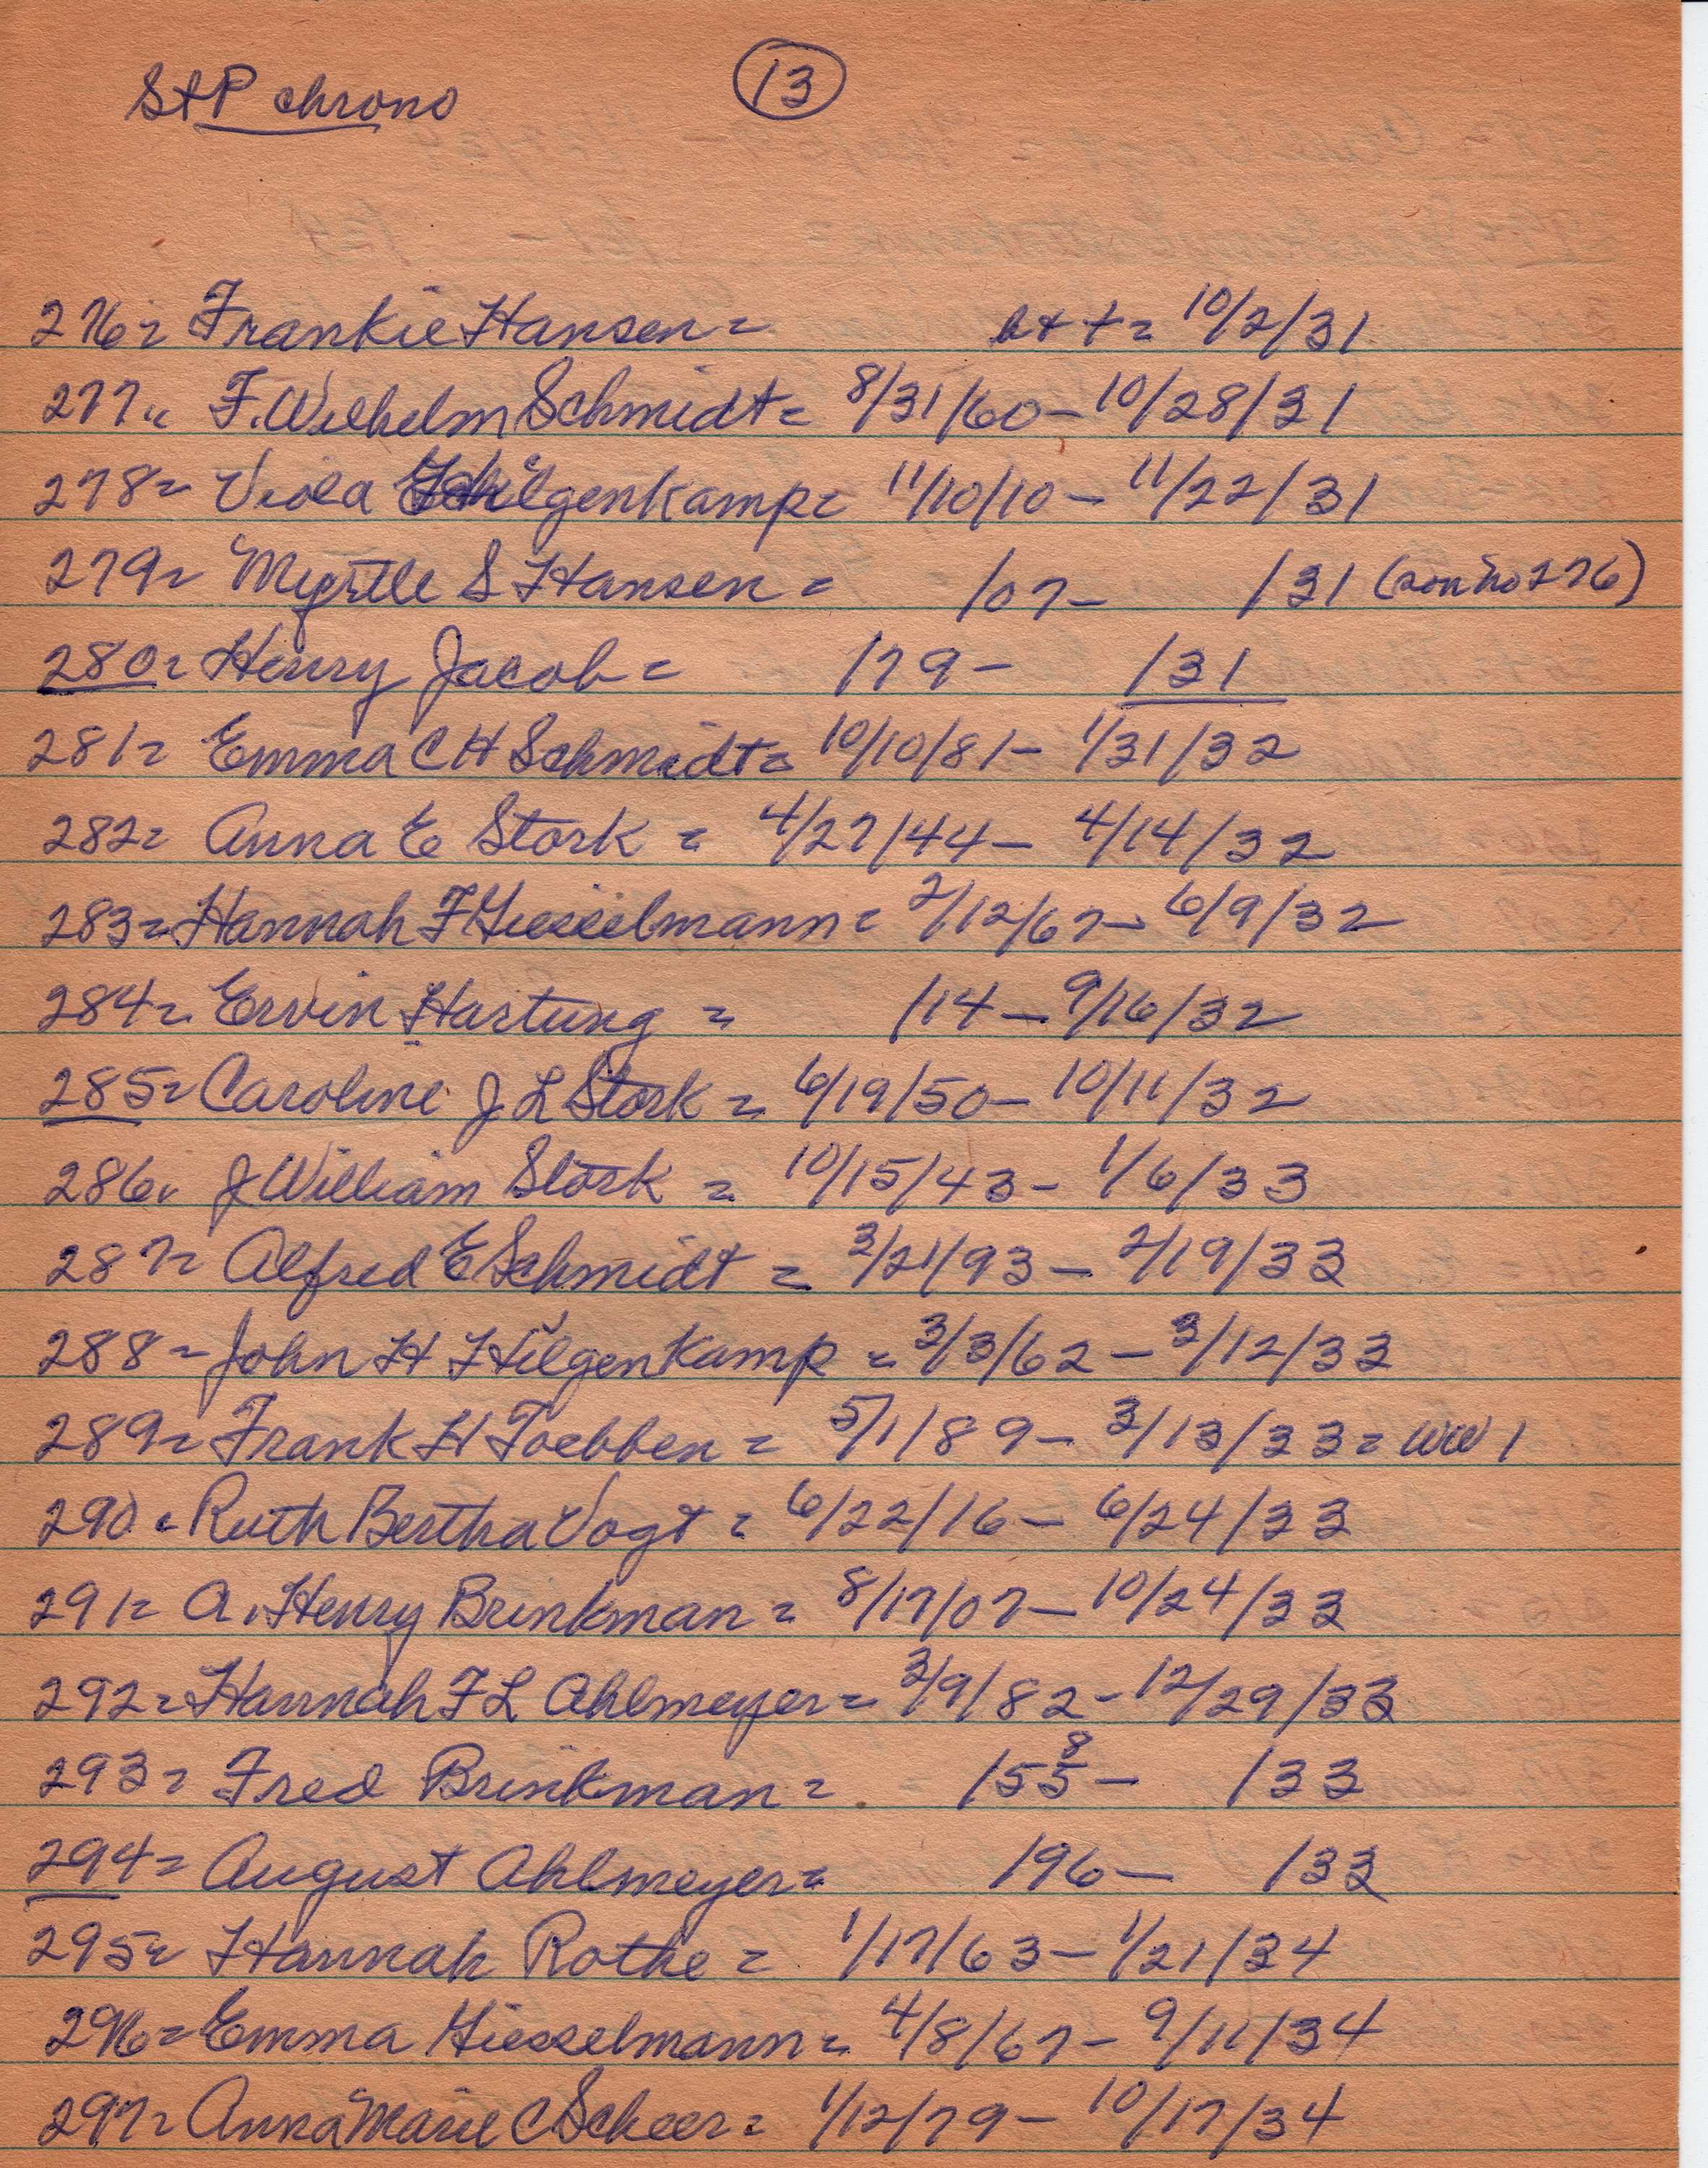 St P chrono
13
276= Frankie Hansen = b + + = 10/2/31
277= F. Wilhelm Schmidt = 8/31/60 - 10/28/31
278= Viola Hilgenkamp = 11/10/10 - 11/22/31
279= Myrtle S Hansen = /07- /31 (son no 276)
280= Henry Jacob = /79- /31
281= Emma C H Schmidt = 10/10/81 - 1/31/32
282= Anna E Stork = 4/27/44 - 4/14/32
283= Hannah F Giesselmann = 2/12/67 - 6/9/32
284= Ervin Hartung = /14 - 9/16/32
285= Caroline J L Stork = 6/19/50 - 10/11/32
286= J William Stork = 10/15/43 - 1/6/33
287= Alfred E Schmidt = 3/21/93 - 2/19/33
288= John H Hilgenkamp = 3/3/62 - 3/12/33
289= Frank H Toebben = 5/1/89 - 3/13/33 = WW 1
290= Ruth Bertha Vogt = 6/22/16 - 6/24/33
291= A. Henry Brinkman = 8/17/07 - 10/24/33
292= Hannah F L Ahlmeyer = 3/9/82 - 12/29/33
293= Fred Brinkman = /55 8 - /33
294= August Ahlmeyer = /96 - /33
295= Hannah Rothe = 1/17/63 - 1/21/34
296= Emma Giesselmann = 4/8/67 - 9/11/34
297= Anna Marie C Scheer = 1/12/79 - 10/17/34